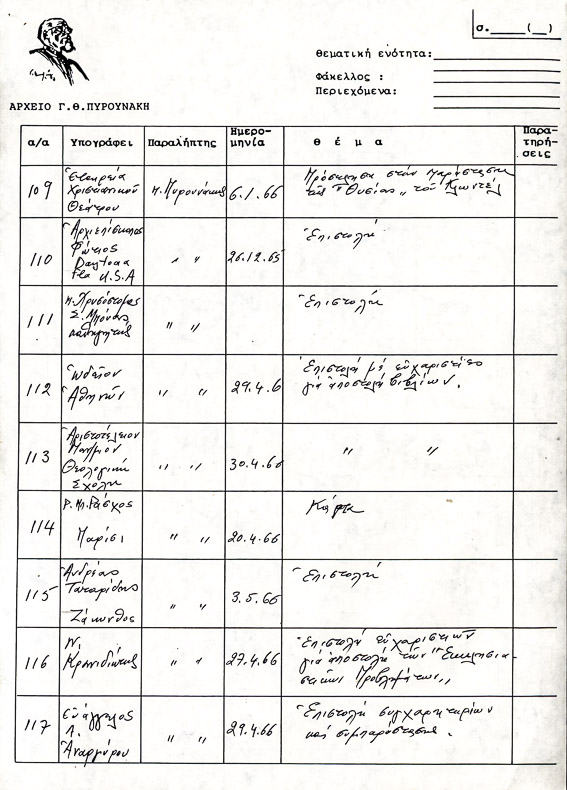 σ._____(__)
θεματική ενότητα:
Φάκελλος :
Περιεχόμενα:
ΑΡΧΕΙΟ Γ.Θ.ΠΥΡΟΥΝΑΚΗ
α/α Υπογράφει Παραλήπτης Ημερο-μηνία θ έ μ α Παρα-τηρή-σεις
109 Ἑταιρεία Χριστιανικοῦ Θεάτρου π. Πυρουνάκης 6.1.66 Πρόσκληση στήν παράσταση τῆς "Θυσίας" τοῦ Κλωντέλ
110 Ἀρχιεπίσκοπος Φώτιος Daytona Fla U.S.A " " 26.12.65 Ἐπιστολή
111 π. Χρυσόστομος Σ. καθηγητής " " Ἐπιστολή
112 Ὠδεῖον Ἀθηνῶν " " 29.4.6 Ἐπιστολή μέ εὐχαριστίες γιά ἀποστολή βιβλίων.
113 Ἀριστοτέλειον Παν/μιον Θεολογική Σχολή " " 30.4.66 " "
114 Ράσχος Παρίσι " " 20.4.66 Κάρτα
115 Ἀνδρέας Ζάκυνθος " " 3.5.66 Ἐπιστολή
116 Ν. Κρανιδιώτης " " 27.4.66 Ἐπιστολή εὐχαριστιῶν γιά ἀποστολή τῶν "Ἐκκλησια-στικῶν Προβλημάτων"
117 Εὐάγγελος Λ. Ἀναργύρου " " 29.4.66 Ἐπιστολή συγχαρητηρίων καί συμπαράστασης.